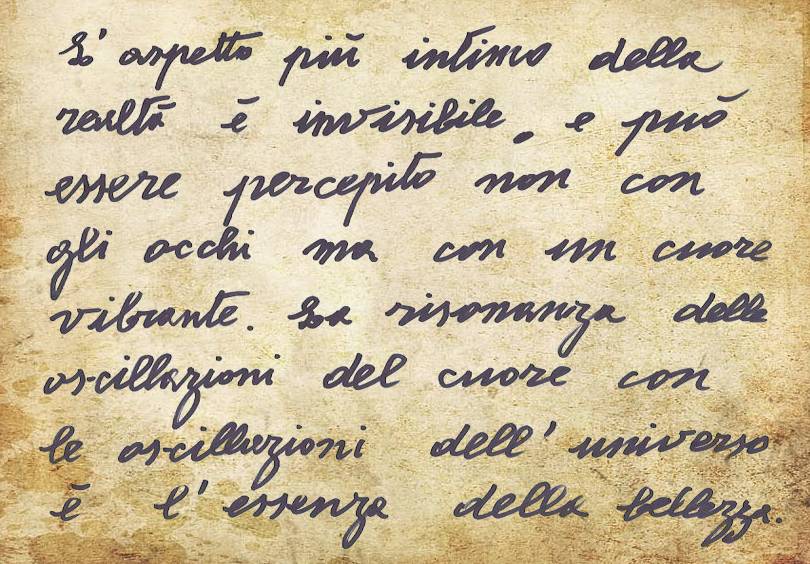 L'aspetto più intimo della
realtà è invisibile, e può
essere percepito non con
gli occhi ma con un cuore
vibrante. La risonanza delle
oscillazioni del cuore con
le oscillazioni dell'universo
è l'essenza della bellezza.